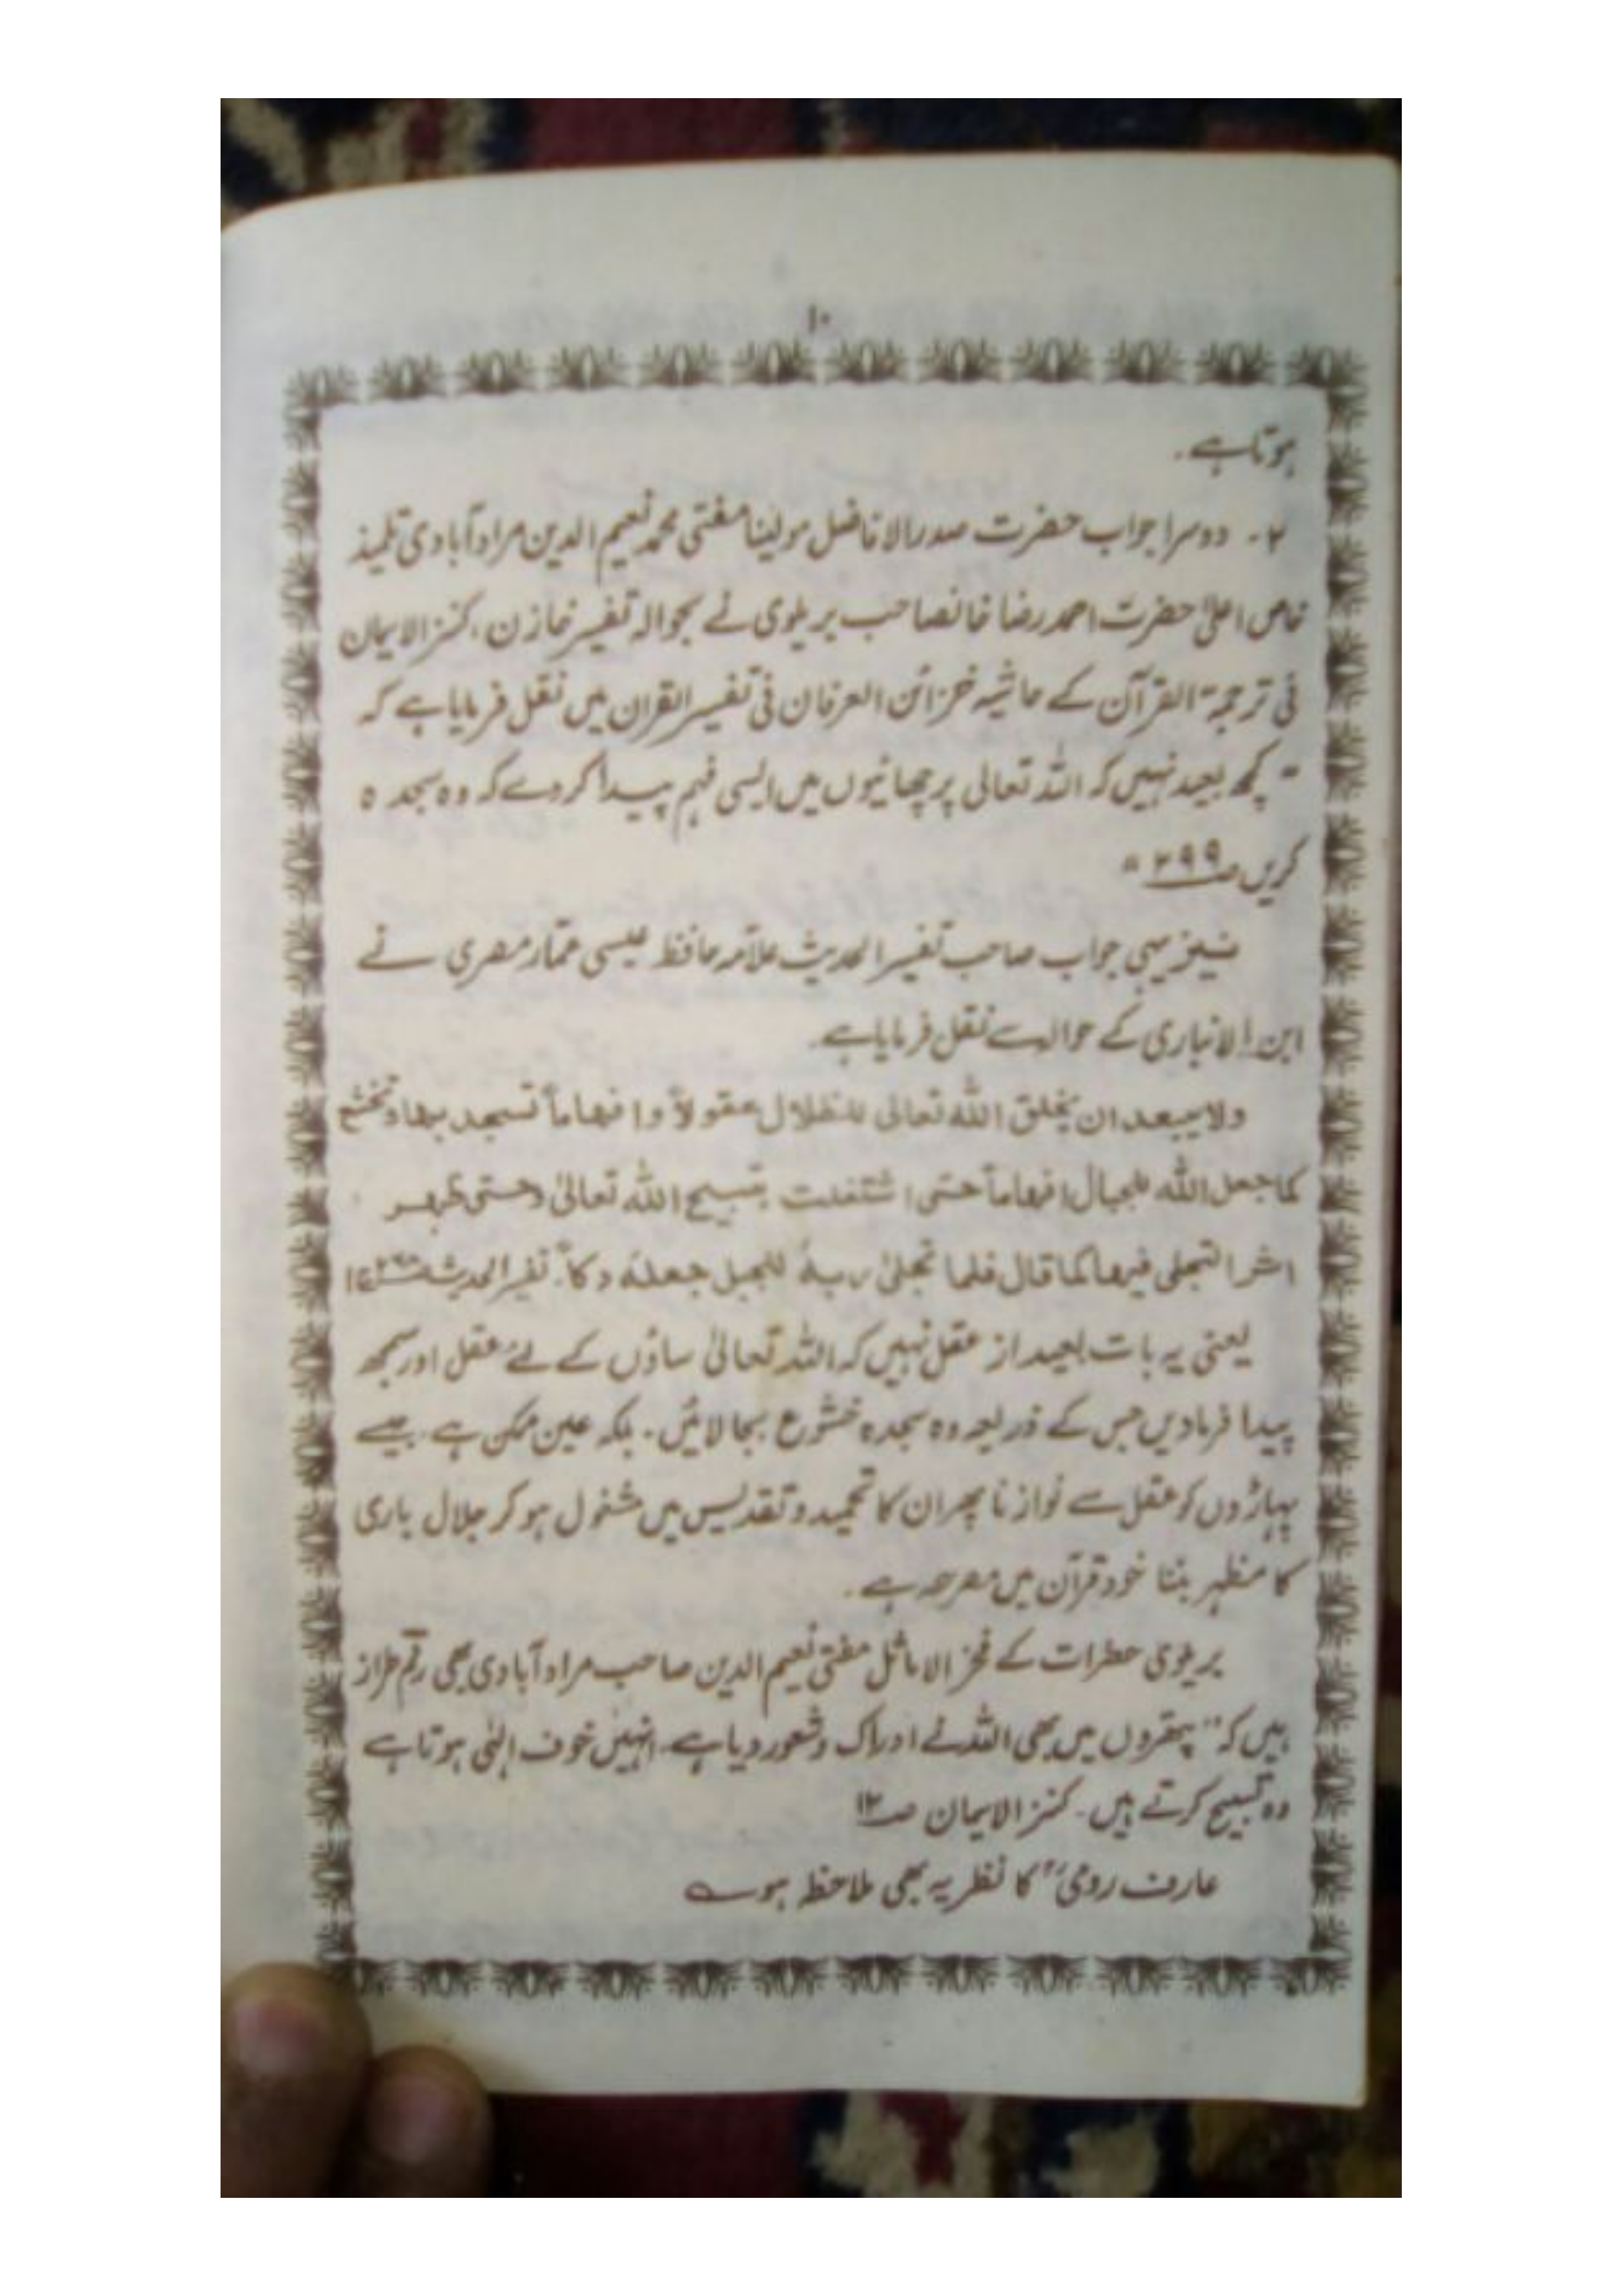 ۱۰
ہوتا ہے ۔
۲ ۔ دوسرا جواب حضرت صدر الافاضل مولینا مفتی محمد نعیم الدین مراد آبادی تلمیذ
خاص اعلیٰ حضرت احمد رضا خانصاحب بریلوی نے بحوالہ تفسیر خازن ، کنز الایمان
فی ترجمۃ القرآن کے حاشیہ خزائن العرفان فی تفسیر القران میں نقل فرمایا ہے کہ
" کچھ بعید نہیں کہ اللہ تعالی پرچھائیوں میں ایسی فہم پیدا کر دے کہ وہ سجدہ
کریں ص۲۹۹ "
نیز یہی جواب صاحب تفسیر الحدیث علامہ حافظ عیسی عمّار مصری نے
ابن الانباری کے حوالہ سے نقل فرمایا ہے ۔
ولا یبعد ان یخلق اللہ تعالی للظلال عقولاً و افہاماً تسجد بہا و تخشع
کما جعل اللہ للجبال افہاماً حتی اشتغلت بتسبیح اللہ تعالیٰ و حتی ظہر
اثر التجلی فیہا کما قال فلما تجلیٰ ربہٗ للجبل جعلہٗ دکاً ۔ تفسیر الحدیث ج۱
یعنی یہ بات بعید از عقل نہیں کہ اللہ تعالیٰ ساؤں کے لئے عقل اور سمجھ
پیدا فرمادیں جس کے ذریعہ وہ سجدہ خشوع بجا لائیں ۔ بلکہ عین ممکن ہے جیسے
پہاڑوں کو عقل سے نوازنا پھر ان کا تحمید و تقدیس میں مشغول ہو کر جلال باری
کا مظہر بننا خود قرآن میں مصرحہ ہے ۔
بریلوی حضرات کے فخر الاماثل مفتی نعیم الدین صاحب مراد آبادی بھی رقم طراز
ہیں کہ " پتھروں میں بھی اللہ نے ادراک و شعور دیا ہے ، انہیں خوف الٰہی ہوتا ہے
وہ تسبیح کرتے ہیں ۔ کنز الایمان ص۱۲
عارف رومیؒ کا نظریہ بھی ملاحظہ ہو ؎